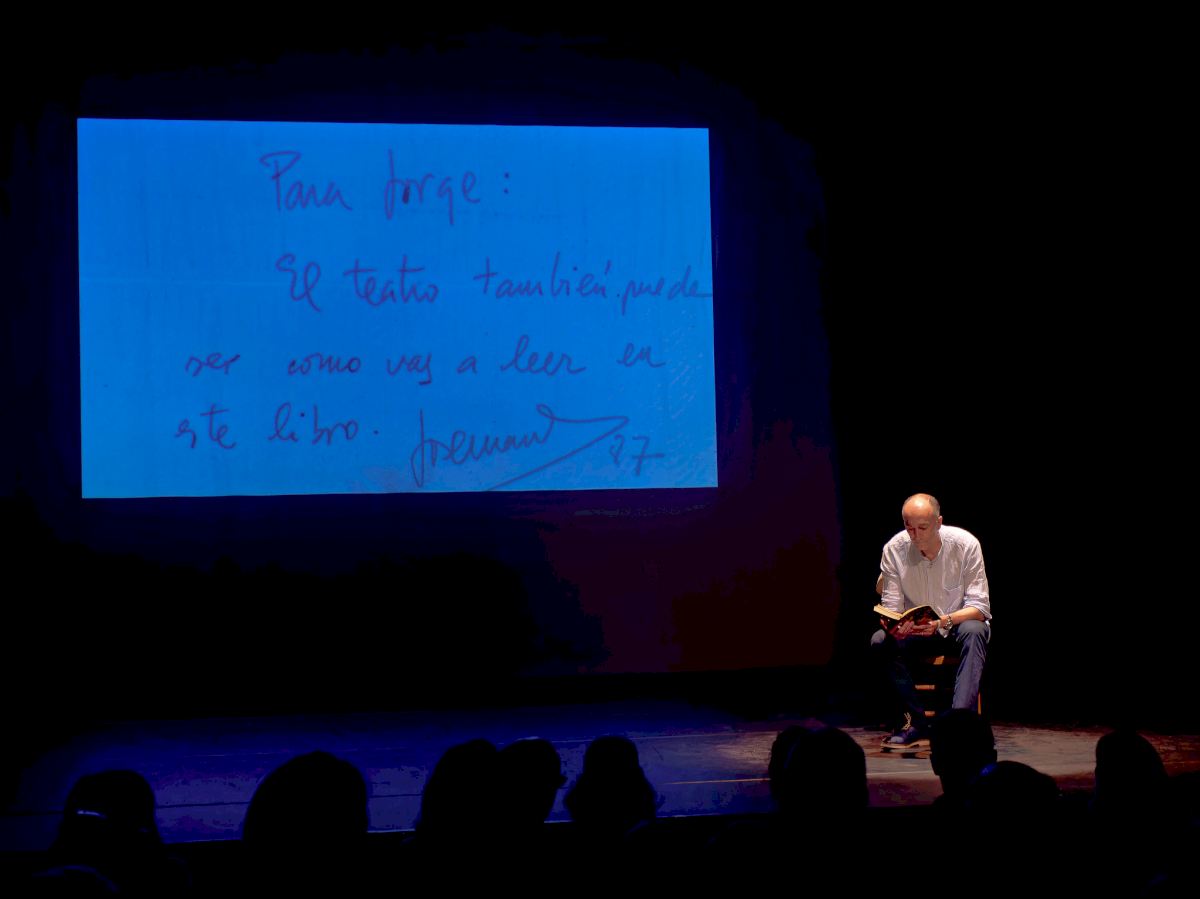 Para Jorge:
El teatro también puede
ser como vas a leer en
este libro.
87